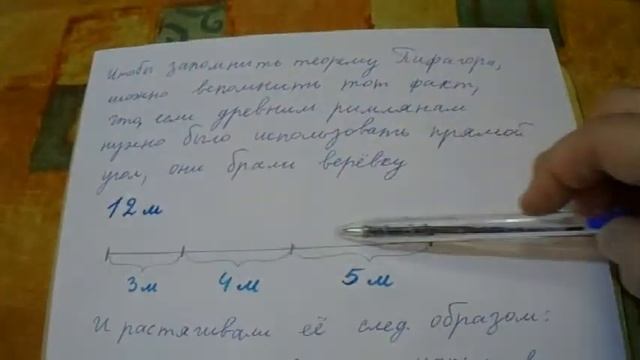 Чтобы запомнить теорему Пифагора,
можно вспомнить тот факт,
что, если древним римлянам
нужно было использовать прямой
угол, они брали верёвку
12 м
3 м 4 м 5 м
И растягивали её след. образом: